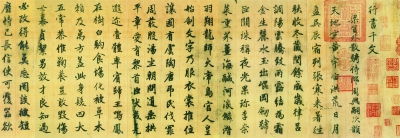 行書千文
梁員外散騎侍郎周興嗣次韻
天地玄黃宇宙洪荒日月
盈昃辰宿列張寒來暑往
秋收冬藏閏餘成歲律呂
調陽雲騰致雨露結為霜
金生麗水玉出崑岡劍號
巨闕珠稱夜光果珍李柰
菜重芥薑海鹹河淡鱗潛
羽翔龍師火帝鳥官人皇
始制文字乃服衣裳推位
讓國有虞陶唐弔民伐罪
周發殷湯坐朝問道垂拱
平章愛育黎首臣伏戎羌
遐邇壹體率賓歸王鳴鳳
在樹白駒食場化被草木
賴及萬方蓋此身髮四大
五常恭惟鞠養豈敢毀傷
女慕貞潔男效才良知過
必改得能莫忘罔談彼短
靡恃己長信使可覆器欲